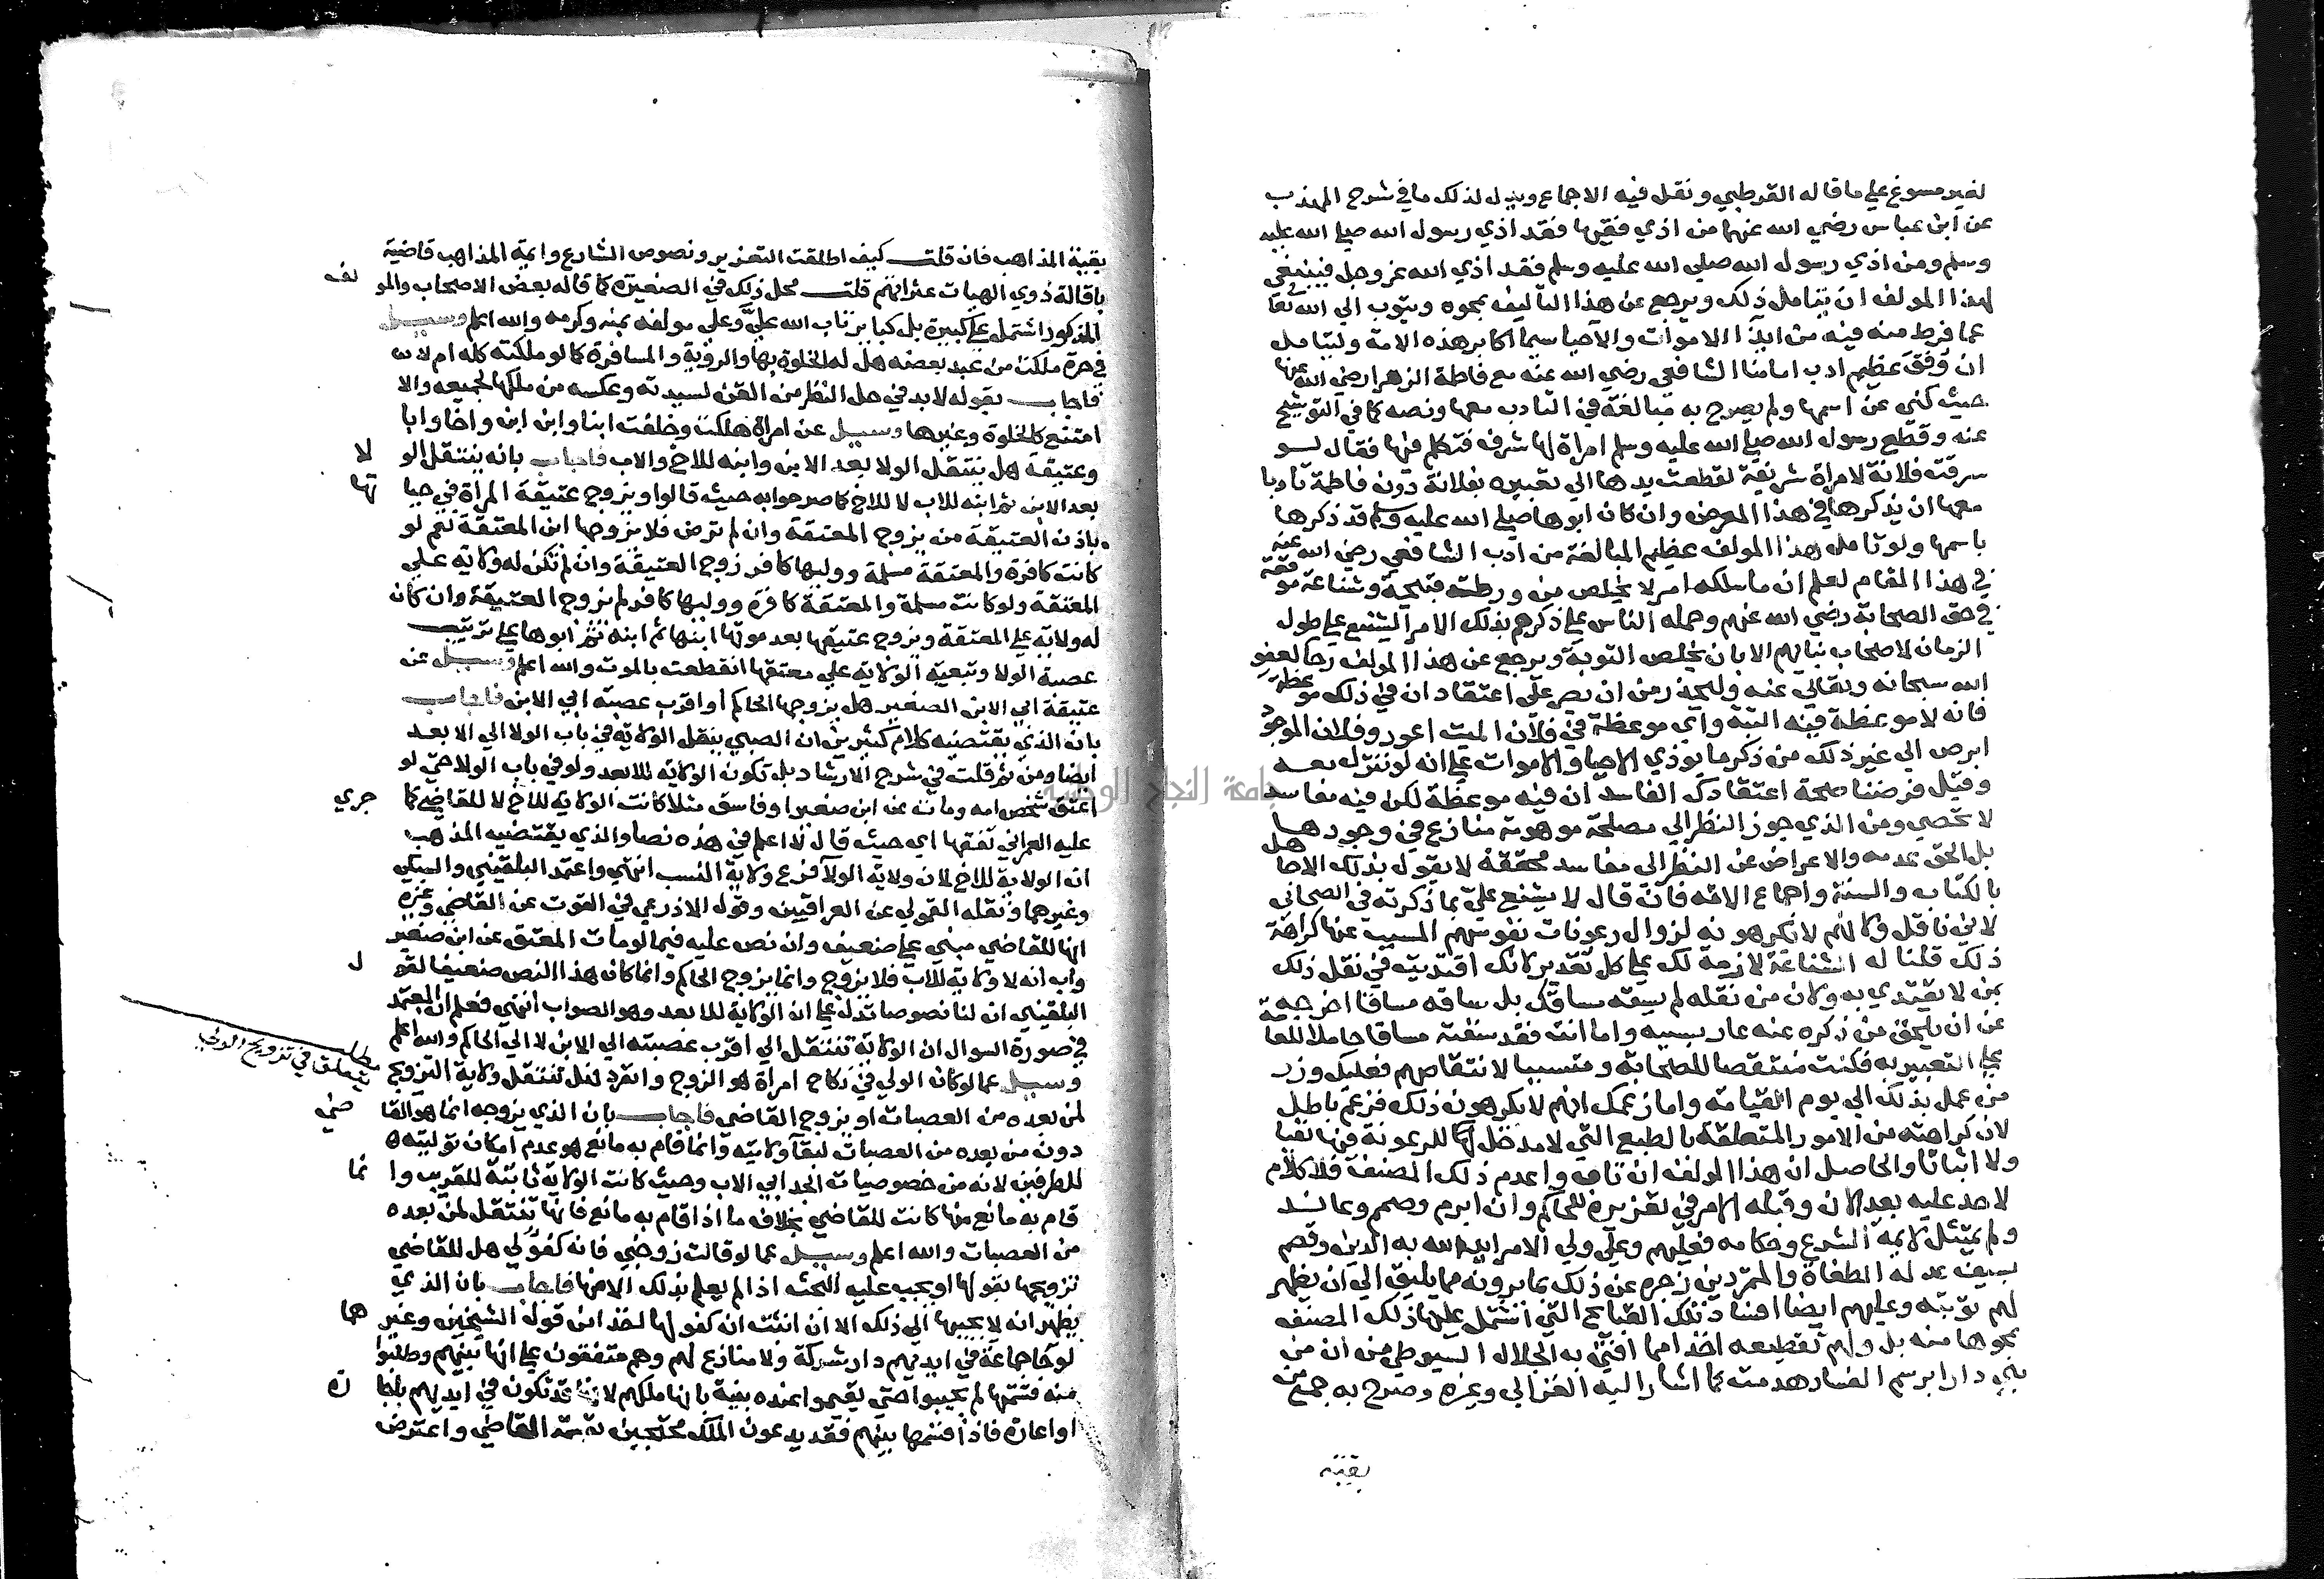 لغير مسوغ علي ما قاله القرطبي ونقل فيه الاجماع ويدل لذلك ما في شرح المهذب
عن ابن عباس رضي الله عنهما من اذي فقيها فقد اذي رسول الله صلي الله عليه
وسلم ومن اذي رسول الله صلي الله عليه وسلم فقد اذي الله عز وجل فينبغي
لهذا المولف ان يتامل ذلك ويرجع عن هذا التاليف بمحوه ويتوب الي الله تعا
عما فرط منه فيه من ايذا الاموات والاحيا سيما اكابر هذه الامة وليتامل
ان وفق عظيم ادب امامنا الشافعي رضي الله عنه مع فاطمة الزهرا رضي الله عنها
حيث كني عن اسمها ولم يصرح به مبالغة في التادب معها ونصه كما في التوشيح
عنه وقطع رسول الله صلي الله عليه وسلم امراة لها شرف فتكلم فيها فقال لو
سرقت فلانة لامراة شريفة لقطعت يدها الي تعبيره بفلانة دون فاطمة تادبا
معها ان يذكرها في هذا المعرض وان كان ابوها صلي الله عليه وسلم قد ذكرها
باسمها ولو تامل هذا المولف عظيم المبالغة من ادب الشافعي رضي الله عنه
في هذا المقام لعلم ان ما سلكه امر لا يخلص من ورطته قبيحة وشناعة موقعة
في حق الصحابة رضي الله عنهم وحمله الناس علي ذكرهم بذلك الامر الشنيع علي طول
الزمان لاصحاب نباتهم الا بان يخلص التوبة ويرجع عن هذا المولف رجا لعفو
الله سبحانه وتعالي عنه وليحذر من ان يصر علي اعتقاد ان في ذلك موعظة
فانه لا موعظة فيه البتة واي موعظة في فلان الميت اعور وفلان الموجود
ابرص الي غير ذلك من ذكر ما يوذي الاحيا والاموات علي انه لو تنزل معه
وقيل فرضنا صحة اعتقادك الفاسد ان فيه موعظة لكن فيه مفاسد
لا تحصي ومن الذي جوز النظر الي مصلحة موهومة منازع في وجودها
بل الحق عدمه والاعراض عن النظر الي مفاسد محققة لا يقول بذلك الا جاهل
بالكتاب والسنة واجماع الامة فان قال لا يشنع علي بما ذكرته في الصحابي
لاني ناقل ولانهم لا يكرهونه لزوال رعونات نفوسهم المسبب عنها كراهة
ذلك قلنا له الشناعة لازمة لك علي كل تقدير لانك اقتديت في نقل ذلك
بمن لا يقتدي به ولان من نقله لم يسقه مساقك بل ساقه مساقا اخرجه
عن ان يلحق من ذكره عنه عار بسببه واما انت فقد سقته مساقا حاملا للعامة
علي التعيير به فكنت منتقصا للصحابة ومتسببا لانتقاصهم فعليك وزر
من عمل بذلك الي يوم القيامة واما زعمك انهم لا يكرهون ذلك فزعم باطل
لان كراهته من الامور المتعلقة بالطبع التي لا مدخل لها للرعونة فيها نفيا
ولا اثباتا والحاصل ان هذا المولف ان تاب واعدم ذلك المصنف فلا كلام
لاحد عليه بعد الان وقبله الامر في تعزيره للحاكم وان ابرم وصمم وعاند
ولم يمتثل لايمة الشرع وحكامه فعليهم وعلي ولي الامر ايد الله به الدين وقصم
بسيف عدله الطغاة والمتمردين زجره عن ذلك بما يرونه مما يليق الي ان يظهر
لهم توبته وعليهم ايضا افنا تلك القبايح التي اشتمل عليها ذلك المصنف
بمحوها منه بل ولهم تقطيعه اخذا مما افتي به الجلال السيوطي من ان من
بني دارا برسم الفساد هدمت كما اشار اليه الغزالي وغيره وصرح به جمع من
بقية
بقية المذاهب فان قلت كيف اطلقت التعزير ونصوص الشارع وايمة المذاهب قاضية
باقالة ذوي الهيات عثراتهم قلت محل ذلك في الصغيرة كما قاله بعض الاصحاب والمولف
المذكور اشتمل علي كبيرة بل كباير تاب الله علي وعلي مولفه بمنه وكرمه والله اعلم وسيل
في حرة ملكت من عبد بعضه هل له الخلوة بها والروية والمسافرة كما لو ملكته كله ام لا
فاجاب بقوله لا بد في حل النظر من القن لسيدته وعكسه من ملكها لجميعه والا
امتنع كالخلوة وغيرها وسيل عن امراة هلكت وخلفت ابنا وابن ابن واخا وابا
وعتيقة هل ينتقل الولا بعد الابن وابنه للاخ والاب فاجاب بانه ينتقل الولا
بعد الابن ثم ابنه للاب لا للاخ كما صرحوا به حيث قالوا ويزوج عتيقة المراة في حياتها
باذن العتيقة من يزوج المعتقة وان لم ترض فلا يزوجها ابن المعتقة نعم لو
كانت كافرة والمعتقة مسلمة ووليها كافر زوج العتيقة وان لم تكن له ولاية علي
المعتقة ولو كانت مسلمة والمعتقة كافرة ووليها كافر لم يزوج العتيقة وان كان
له ولاية علي المعتقة ويزوج عتيقها بعد موتها ابنها ثم ابنه ثم ابوها علي ترتيب
عصبة الولا وتبعية الولاية علي معتقها انقطعت بالموت والله اعلم وسيل عن
عتيقة ابي الابن الصغير هل يزوجها الحاكم او اقرب عصبة ابي الابن فاجاب
بان الذي يقتضيه كلام كثيرين ان الصبي ينقل الولاية في باب الولا الي الابعد
ايضا ومن ثم قلت في شرح الارشاد بل تكون الولاية للابعد ولو في باب الولا حتي لو
اعتق شخص امه ومات عن ابن صغير او فاسق مثلا كانت الولاية للاخ لا للقاضي كما جري
عليه العمراني تفقها اي حيث قال لا اعلم في هذه نصا والذي يقتضيه المذهب
ان الولاية للاخ لان ولاية الولا فرع ولاية النسب انتهي واعتمد البلقيني والسبكي
وغيرهما ونقله القمولي عن العراقيين وقول الاذرعي في القوت عن القاضي وغيره
انها للقاضي مبني علي ضعيف وان نص عليه فيما لو مات المعتق عن ابن صغير
واب انه لا ولاية للاب فلا يزوج وانما يزوج الحاكم وانما كان هذا النص ضعيفا لقول
البلقيني ان لنا نصوصا تدل علي ان الولاية للابعد وهو الصواب انتهي فعلم ان المعتمد
في صورة السوال ان الولاية تنتقل الي اقرب عصبته الي الابن لا الي الحاكم والله اعلم
مطلب يتعلق في تزويج الولي
وسيل عما لو كان الولي في نكاح امراة هو الزوج وانفرد هل تنتقل ولاية التزويج
لمن بعده من العصبات او يزوج القاضي فاجاب بان الذي يزوجه انما هو القاضي
دون من بعده من العصبات لبقا ولايته وانما قام به مانع هو عدم امكان توليته
للطرفين لانه من خصوصيات الجد ابي الاب وحيث كانت الولاية ثابتة للقريب وانما
قام به مانع منها كانت للقاضي بخلاف ما اذا قام به مانع فانها تنتقل لمن بعده
من العصبات والله اعلم وسيل عما لو قالت زوجني فانه كفو لي هل للقاضي
تزويجها بقولها او يجب عليه البحث اذا لم يعلم بذلك الا منها فاجاب بان الذي
يظهر انه لا يجيبها الي ذلك الا ان اثبت ان كفو لها اخذا من قول الشيخين وغيرهما
لو جا جماعة في ايديهم دار شركة ولا منازع لهم وهم متفقون علي انها بينهم وطلبوا
منه قسمتها لم يجيبوا حتي يقيموا عنده بنية بانها ملكهم لانها قد تكون في ايديهم باجارة
او اعارة فاذا قسمها بينهم فقد يدعون الملك محتجين بقسمة القاضي واعترض
جامعة النجاح الوطنية